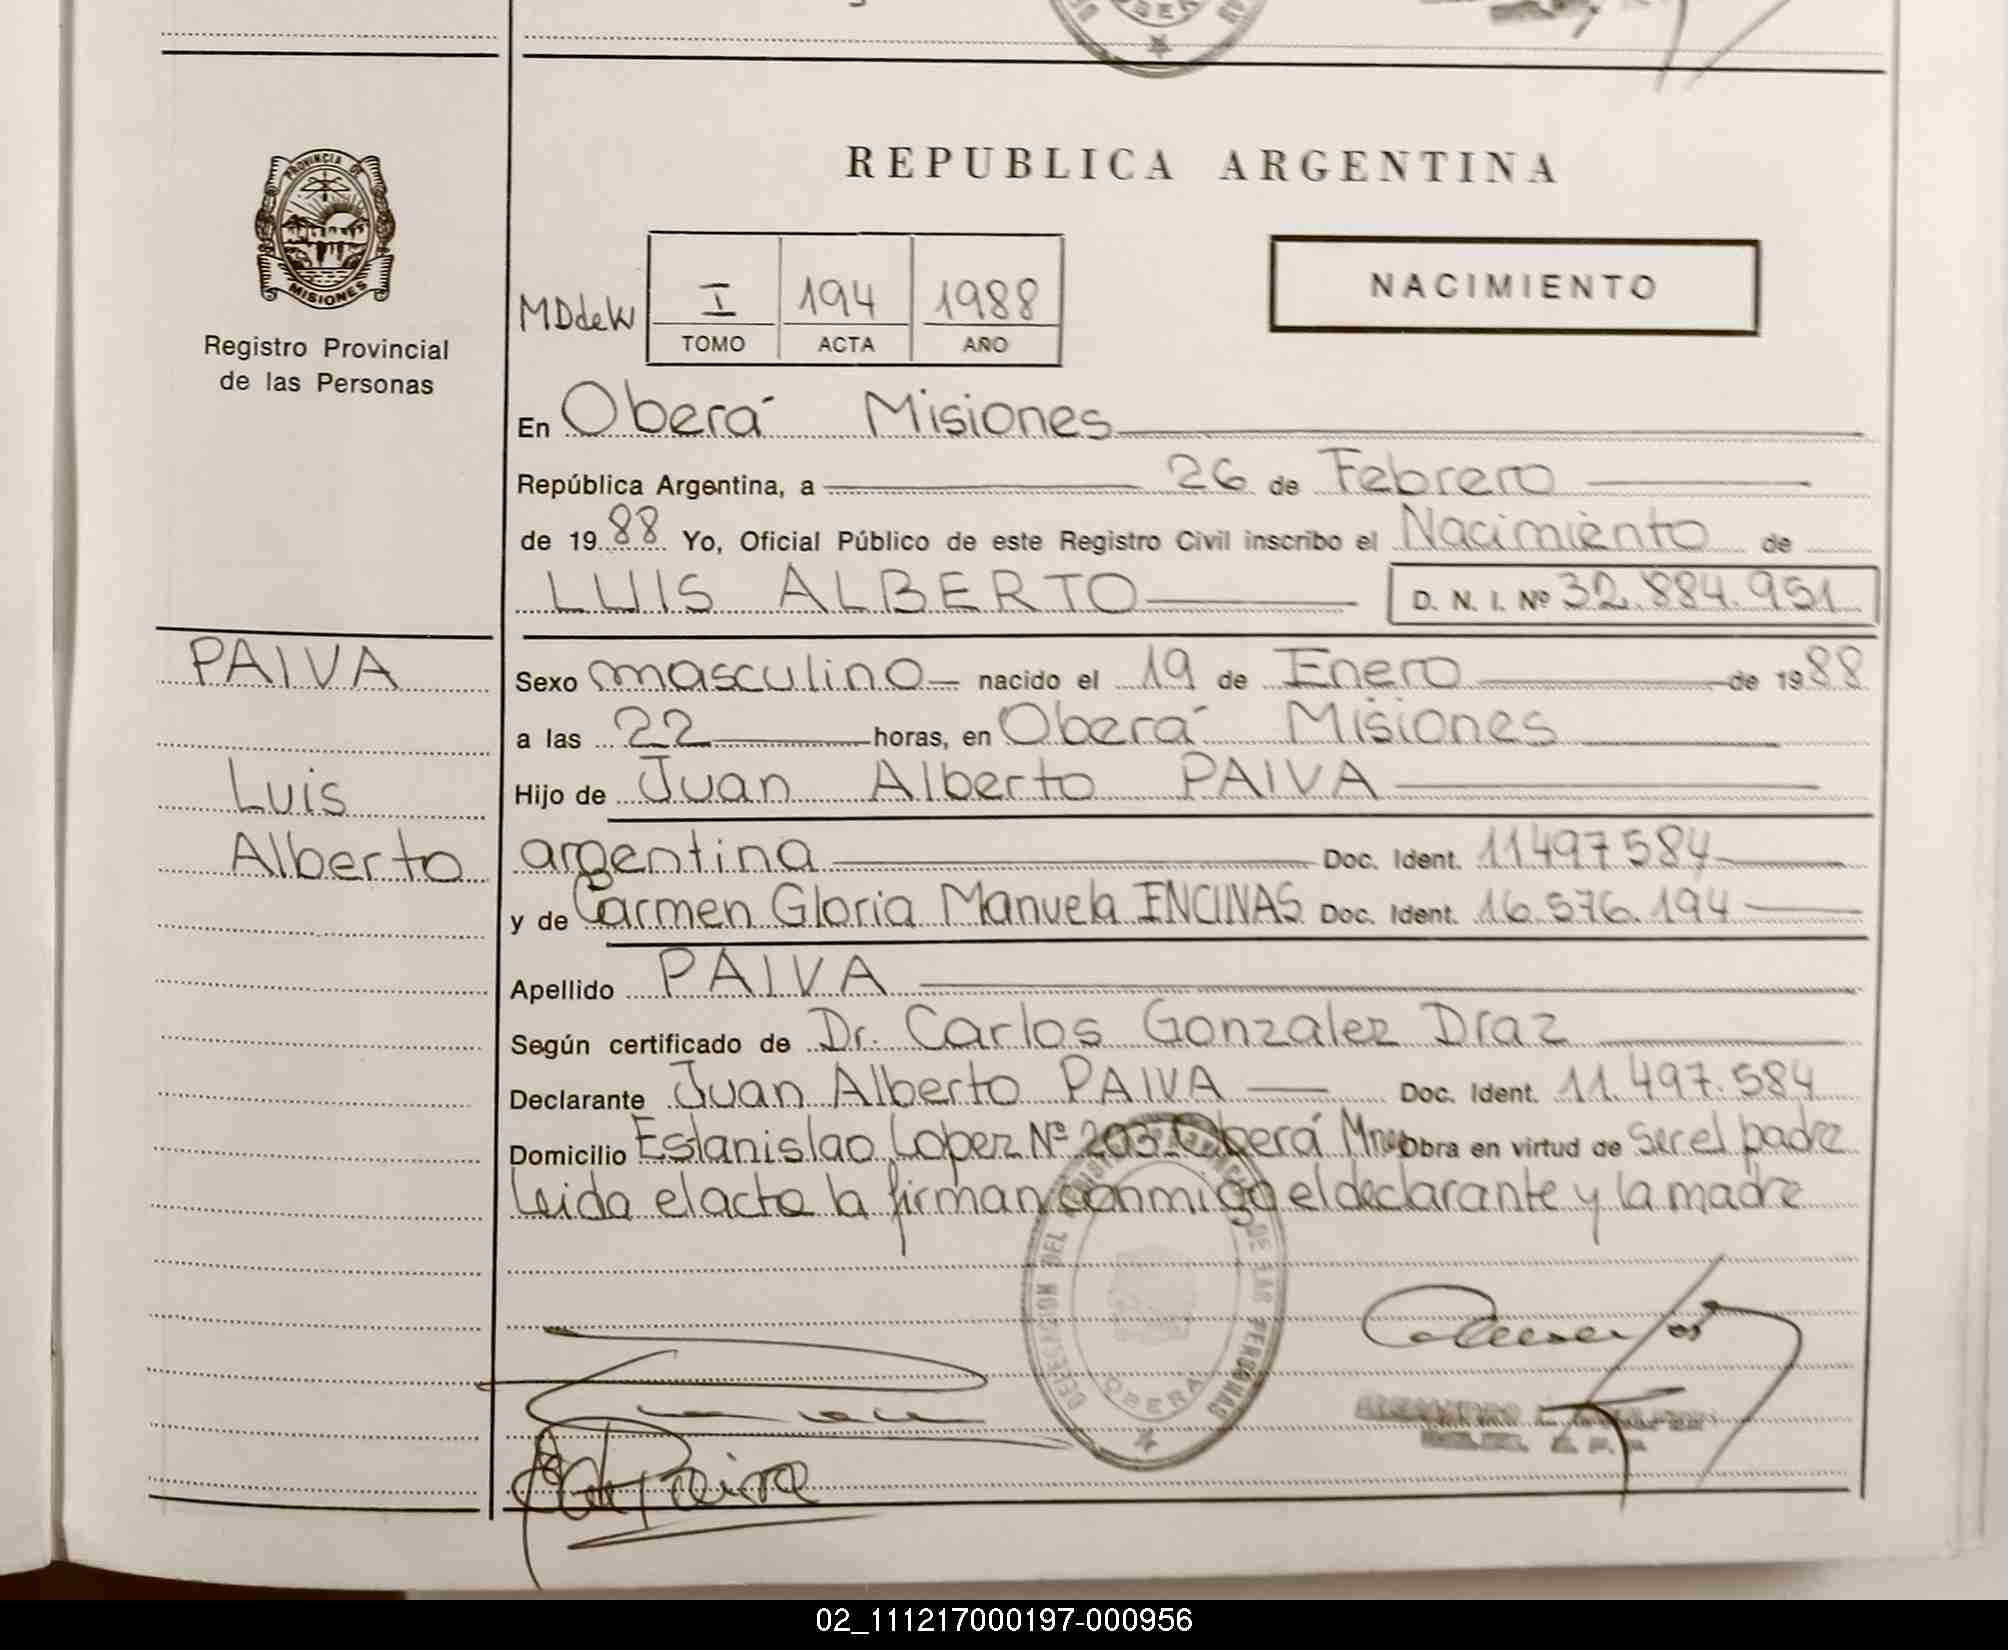 REPUBLICA ARGENTINA
PROVINCIA DE
MISIONES
Registro Provincial
de las Personas
NACIMIENTO
MDdeW I 194 1988
TOMO ACTA AÑO
En Oberá Misiones
República Argentina, a 26 de Febrero
de 1988 Yo, Oficial Público de este Registro Civil inscribo el Nacimiento de
LUIS ALBERTO D. N. I. Nº 32.884.951
PAIVA
Luis
Alberto
Sexo masculino nacido el 19 de Enero de 1988
a las 22 horas, en Oberá Misiones
Hijo de Juan Alberto PAIVA
argentina Doc. Ident. 11497584
y de Carmen Gloria Manuela ENCINAS Doc. Ident. 16.576.194
Apellido PAIVA
Según certificado de Dr. Carlos Gonzalez Diaz
Declarante Juan Alberto PAIVA Doc. Ident. 11.497.584
Domicilio Estanislao Lopez Nº 203 Oberá Mnes Obra en virtud de ser el padre
Leida el acta la firman conmigo el declarante y la madre
DELEGACION DEL REGISTRO PROVINCIAL DE LAS PERSONAS
OBERA
02_111217000197-000956